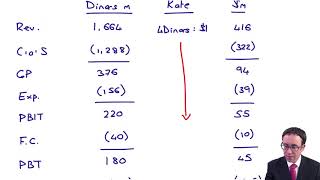 Dinars m Rate $m
Rev. 1,664 4Dinars : $1 416
C.o.S (1,288) (322)
GP 376 94
Exp. (156) (39)
PBIT 220 55
F.C. (40) (10)
PBT 180 45